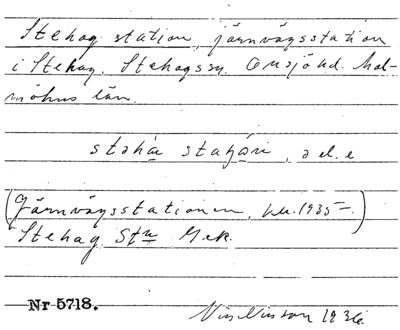 Stehag station, järnvägsstation
i Stehag. Stehagssn. Onsjö hd. Mal-
möhus län.
stəha staʃɷn, ə el. e
(Järnvägsstationen, hu. 1935 –.)
Stehag Stn Mek.
Nr 5718.
1936